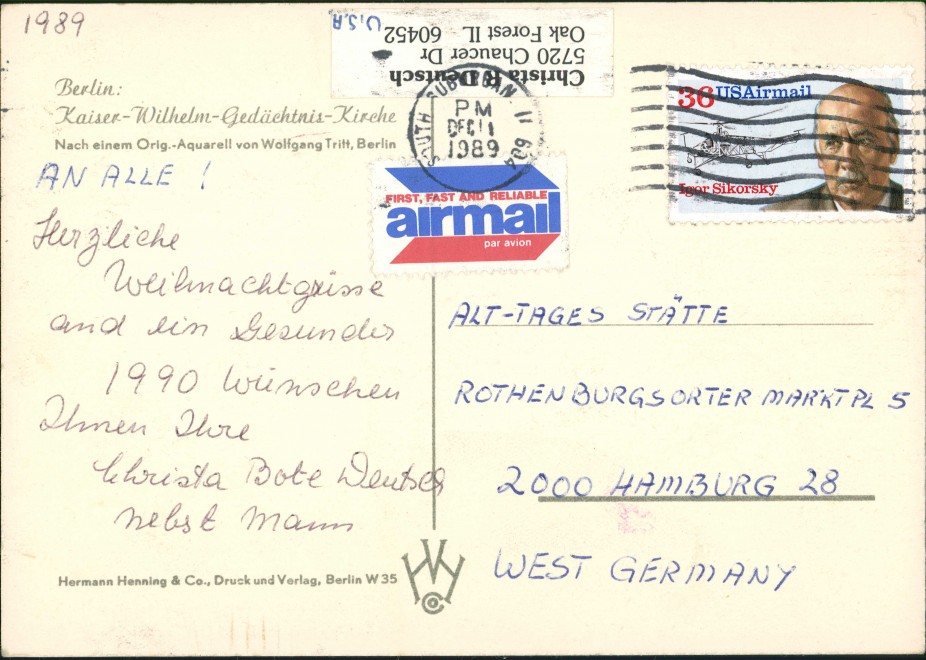 1989
U.S.A
Christa R Deutsch
5720 Chaucer Dr
Oak Forest IL 60452
Berlin:
Kaiser-Wilhelm-Gedächtnis-Kirche
Nach einem Orig.-Aquarell von Wolfgang Tritt, Berlin
SOUTH SUBURBAN, IL 604
PM
DEC 11
1989
36 USAirmail
Igor Sikorsky
FIRST, FAST AND RELIABLE
airmail
par avion
AN ALLE !
Herzliche
Weihnachtgrüsse
und ein Gesundes
1990 wünschen
Ihnen Ihre
Christa Bote Deutsch
nebst Mann
ALT-TAGES STÄTTE
ROTHENBURGSORTER MARKTPL 5
2000 HAMBURG 28
WEST GERMANY
Hermann Henning & Co., Druck und Verlag, Berlin W 35